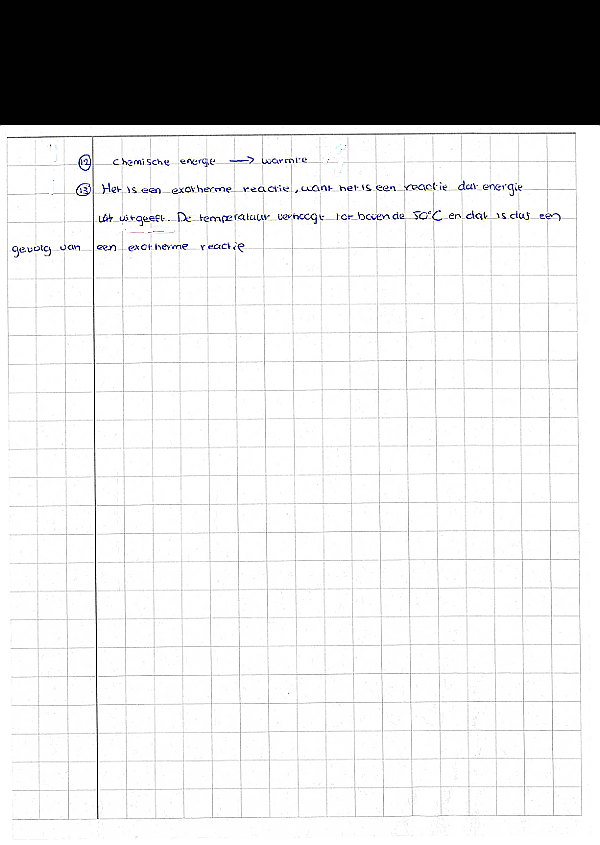 12 chemische energie → warmte
13 Het is een exotherme reactie, want het is een reactie dat energie
uitgeeft. De temperatuur verhoogt tot boven de 50°C en dat is dus een
gevolg van een exotherme reactie